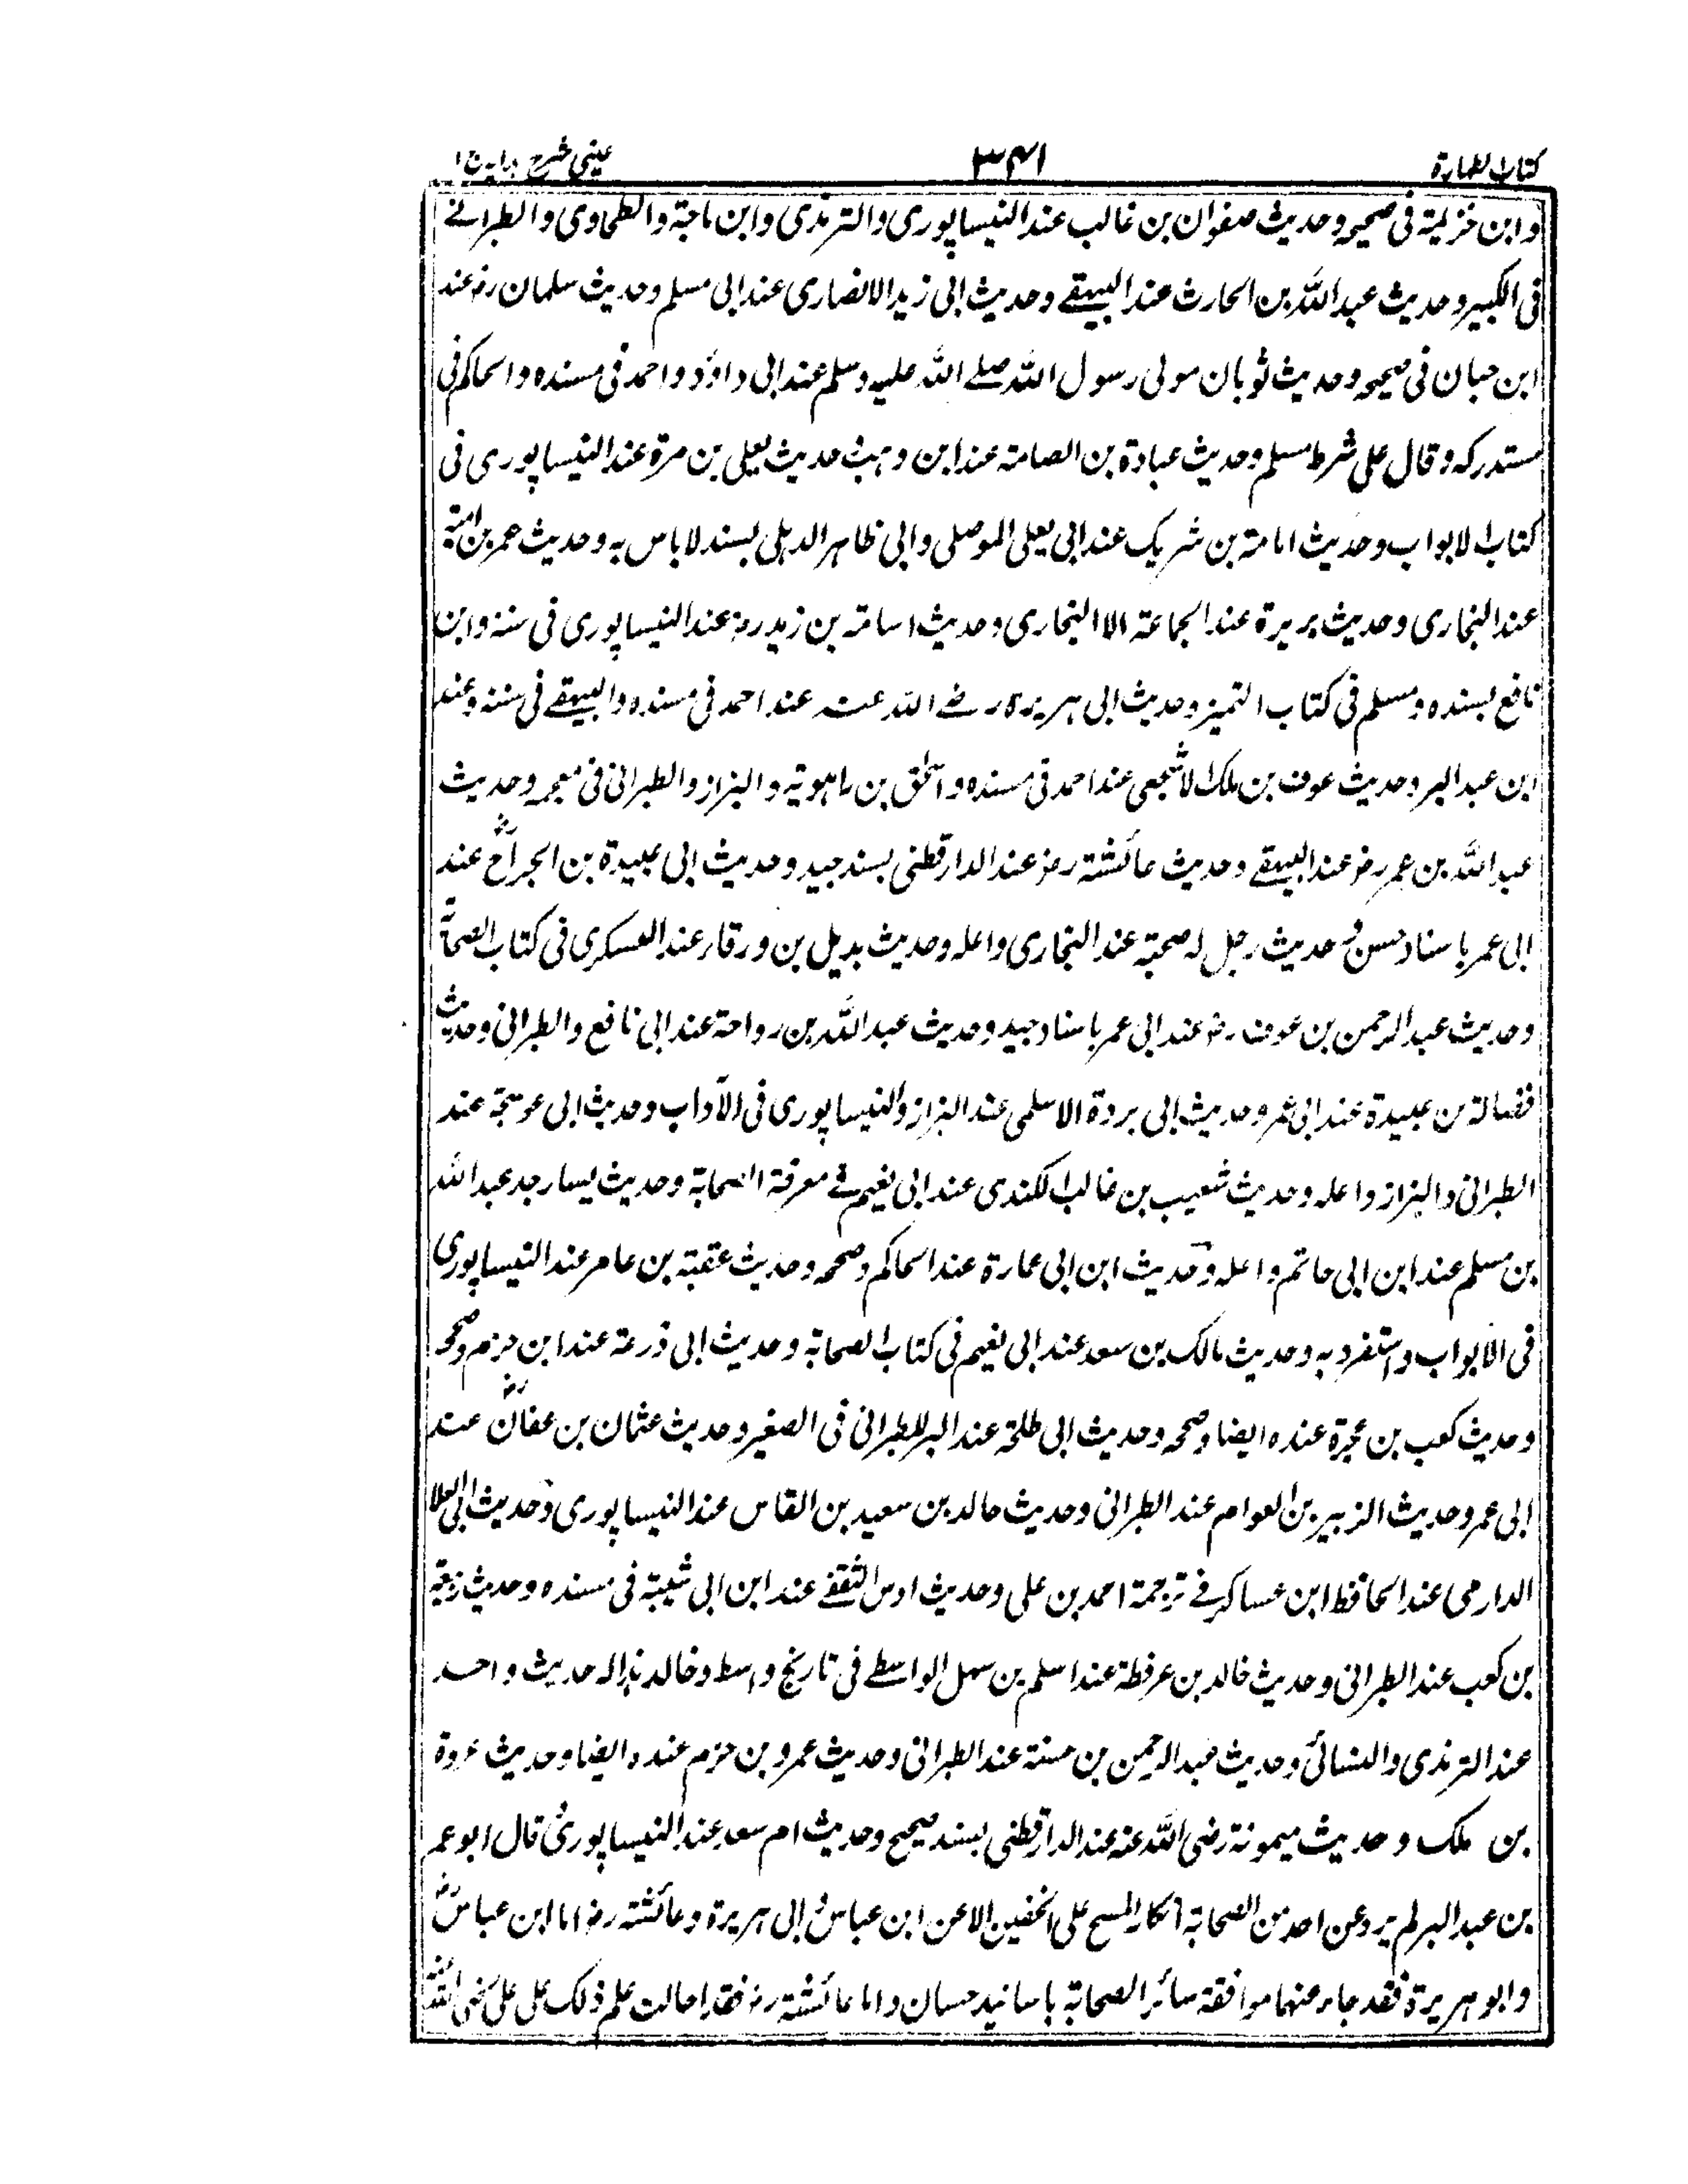 كتاب الطهارة
٣٤١
عینی شرح ہدایہ ج ا
وابن خزيمة في صحيحه وحديث صفوان بن غالب عند النيساپوري والترمذي وابن ماجة والطحاوي والطبراني
في الكبير وحديث عبد الله بن الحارث عند البيهقي وحديث ابي زيد الانصاري عند ابي مسلم وحديث سلمان رض عند
ابن حبان في صحيحه وحديث ثوبان مولى رسول الله صلے الله عليه وسلم عند ابي داؤد واحمد في مسنده والحاكم في
مستدركه وقال على شرط مسلم وحديث عبادة بن الصامة عند ابن وهب وحديث يعلى بن مرة عند النيساپوري في
كتاب الابواب وحديث امامة بن شريك عند ابي يعلى الموصلي وابي ظاهر الدهلي بسند لا باس به وحديث عمر بن امية
عند البخاري وحديث بريرة عند الجماعة الا البخاري وحديث اسامة بن زيد رض عند النيساپوري في سننه وابن
نافع بسنده ومسلم في كتاب التميز وحديث ابي هريرة رضے الله عنه عند احمد في مسنده والبيهقے في سننه وعند
ابن عبد البر وحديث عوف بن ملك الاشجعي عند احمد في مسنده واسحق بن راهوية والبزاز والطبراني في معجمه وحديث
عبد الله بن عمر رض عند البيهقے وحديث عائشة رض عند الدارقطني بسند جيد وحديث ابي عبيدة بن الجراح رض عند
ابي عمر باسناد حسن و حديث رجل له صحبة عند البخاري واعله وحديث بديل بن ورقار عند العسكري في كتاب الصحابة
وحديث عبد الرحمن بن عوف رض عند ابي عمر باسناد جيد وحديث عبد الله بن رواحة عند ابي نافع والطبراني وحديث
فضالة بن عبيدة عند ابي عمر وحديث ابي بردة الاسلمي عند البزاز والنيساپوري في الآداب وحديث ابي عوسجة عند
الطبراني والبزاز واعله وحديث شعيب بن غالب الكندي عند ابي نعيم في معرفة الصحابة وحديث يسار جد عبد الله
بن مسلم عند ابن ابي حاتم واعله وحديث ابن ابي عمارة عند الحاكم وصححه وحديث عقبة بن عامر عند النيساپوري
في الابواب واستفرد به وحديث مالك بن سعد عند ابي نعيم في كتاب الصحابة وحديث ابي ذرعة عند ابن حزم وصححه
وحديث كعب بن عجرة عنده ايضا وصححه وحديث ابي طلحة عند البر للطبراني في الصغير وحديث عثمان بن عفان رض عند
ابي عمر وحديث الزبير بن العوام عند الطبراني وحديث خالد بن سعيد بن القاس عند النيساپوري وحديث ابي العلا
الدارمي عند الحافظ ابن عساكر في ترجمة احمد بن علي وحديث اوس الثقفے عند ابن ابي شيبة في مسنده وحديث ربيعة
بن كعب عند الطبراني وحديث خالد بن عرفطة عند اسلم بن سهل الواسطے في تاريخ واسط وخالد هذا له حديث واحد
عند الترمذي والنسائي وحديث عبد الرحمن بن حسنة عند الطبراني وحديث عمرو بن حزم عنده ايضا وحديث عروة
بن ملك وحديث ميمونة رضي الله عنه عند الدارقطني بسند صحيح وحديث ام سعد عند النيساپوري وقال ابو عمر
بن عبد البر لم يرد عن احد من الصحابة انكار المسح على الخفين الا عن ابن عباس و ابي هريرة وعائشة رض اما ابن عباس رض
وابو هريرة فقد جاء عنهما موافقة سائر الصحابة باسانيد حسان واما عائشة رض فقد احالت علم ذلك على علي رضي الله عنه